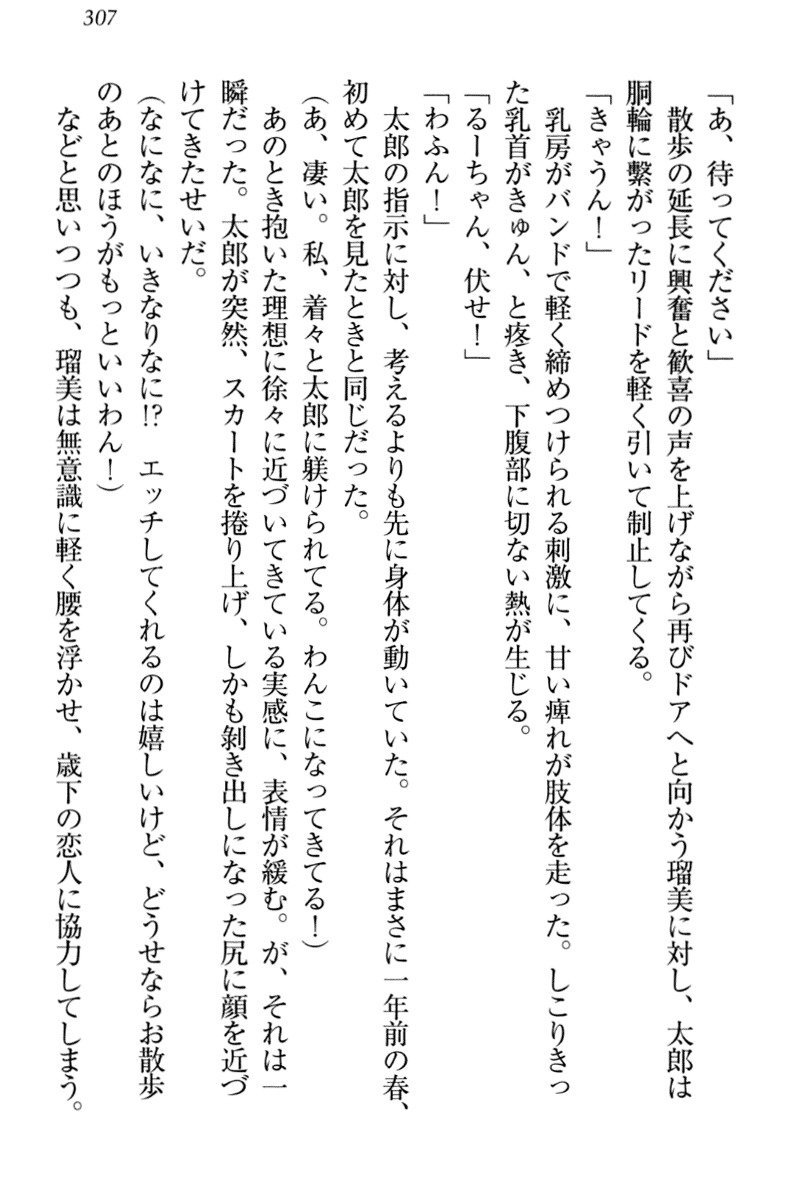 307
「あ、待ってください」
散歩の延長に興奮と歓喜の声を上げながら再びドアへと向かう瑠美に対し、太郎は
胴輪に繋がったリードを軽く引いて制止してくる。
「きゃうん！」
乳房がバンドで軽く締めつけられる刺激に、甘い痺れが肢体を走った。しこりきっ
た乳首がきゅん、と疼き、下腹部に切ない熱が生じる。
「るーちゃん、伏せ！」
「わふん！」
太郎の指示に対し、考えるよりも先に身体が動いていた。それはまさに一年前の春、
初めて太郎を見たときと同じだった。
（あ、凄い。私、着々と太郎に躾けられてる。わんこになってきてる！）
あのとき抱いた理想に徐々に近づいてきている実感に、表情が緩む。が、それは一
瞬だった。太郎が突然、スカートを捲り上げ、しかも剝き出しになった尻に顔を近づ
けてきたせいだ。
（なになに、いきなりなに!?　エッチしてくれるのは嬉しいけど、どうせならお散歩
のあとのほうがもっといいわん！）
などと思いつつも、瑠美は無意識に軽く腰を浮かせ、歳下の恋人に協力してしまう。